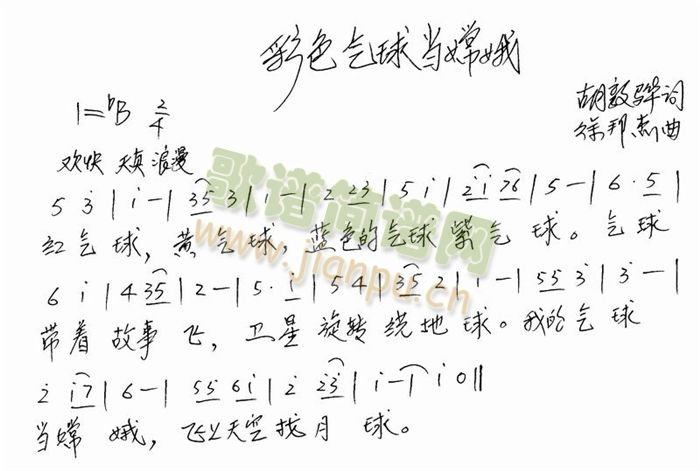 彩色气球当嫦娥
胡敦骅词
1=♭B 2/4
徐邦杰曲
欢快 天真 浪漫
5 3̇ | i - | 35 3 | i - | 2 23 | 5 i | 2̇i 76 | 5 - | 6 · 5 |
红气球，黄气球，蓝色的气球紫气球。气球
6 i | 4 35 | 2 - | 5 · i | 5 4 | 35 2 | i - | 55 3̇ | 3̇ - |
带着故事飞，卫星旋转绕地球。我的气球
2̇ i7 | 6 - | 55 6i | 2̇ 2̇3̇ | i - | i 0 ||
当嫦娥，飞上天空找月球。
歌谱简谱网
www.jianpu.cn